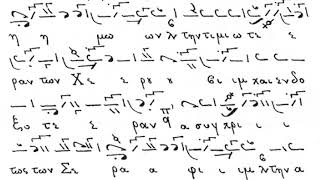 η η μω ων λ την τιμι ω τε ε
ραν των Χε ε ρου ου βι ιμ και ενδο
ξο τε ε ραν α συ γκρι ι ι
τως των Σε ρα α φι ιμ λ την α